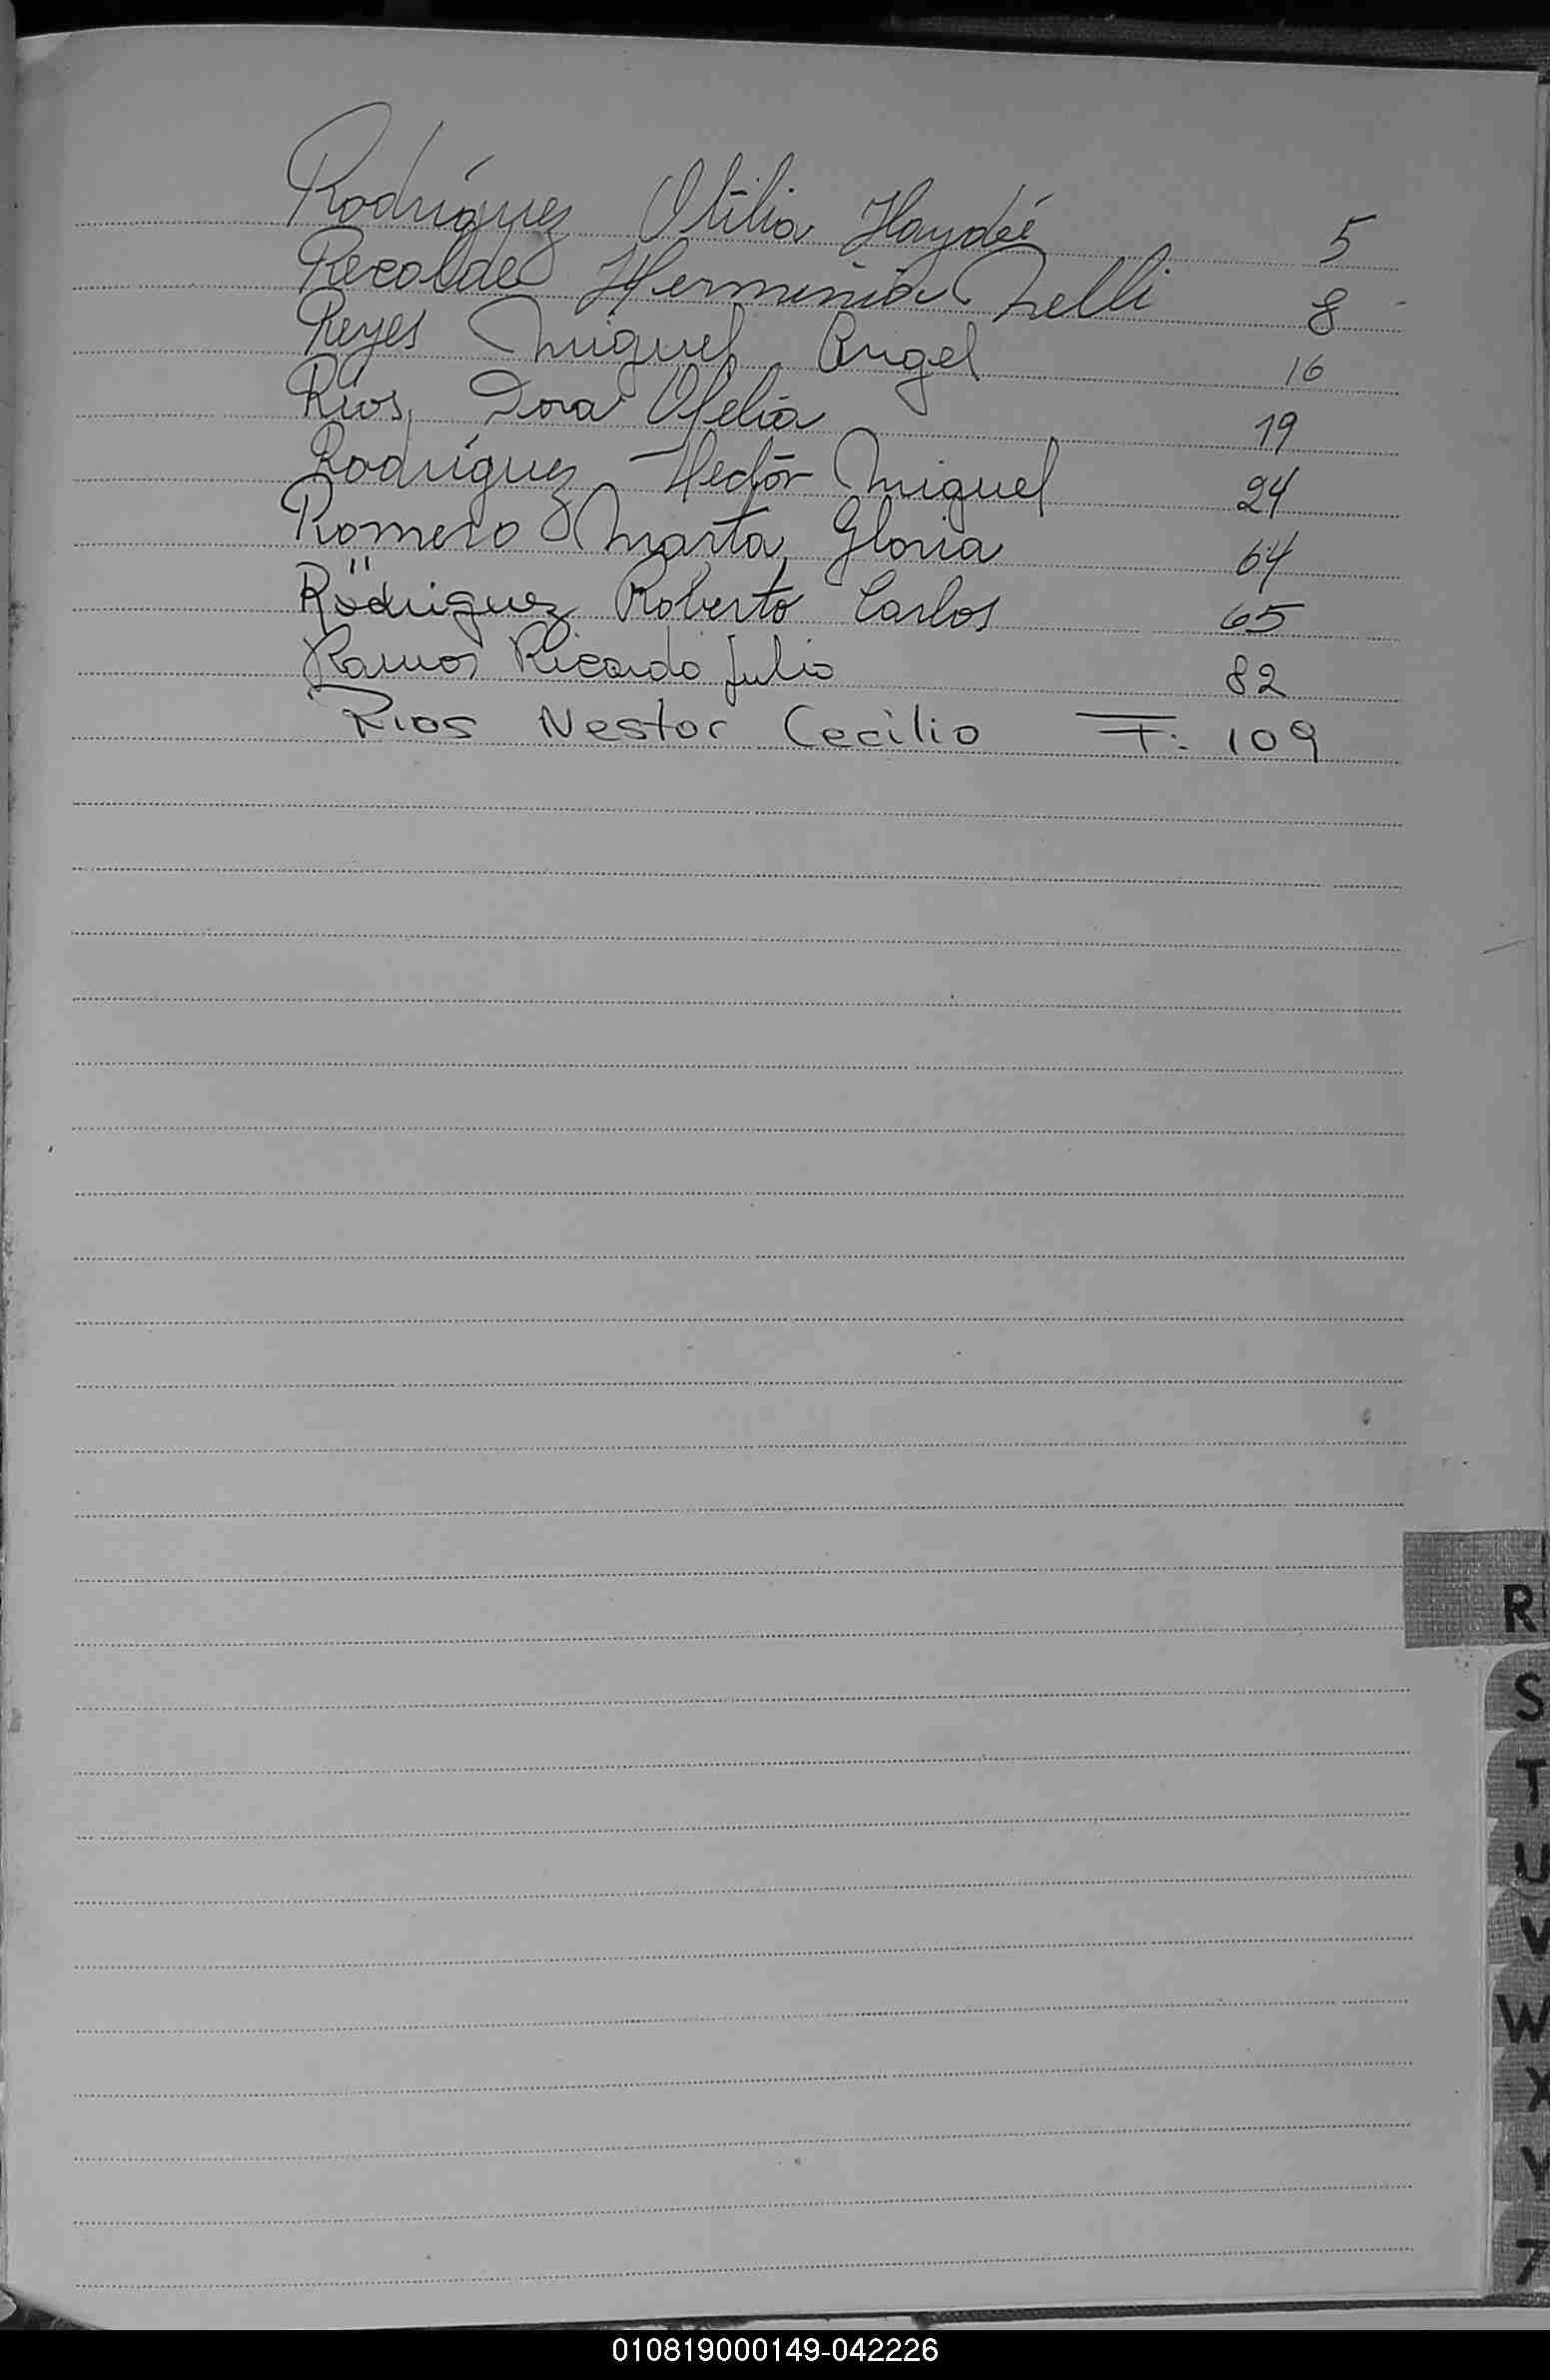 Rodríguez Otilia Haydeé 5
Recalde Herminia Nelli 8
Reyes Miguel Angel 16
Rios, Dora Ofelia 19
Rodríguez Hector Miguel 24
Romero Marta Gloria 64
Rodriguez Roberto Carlos 65
Ramos Ricardo Julio 82
Rios Nestor Cecilio F: 109
R
S
T
U
V
W
X
Y
Z
010819000149-042226